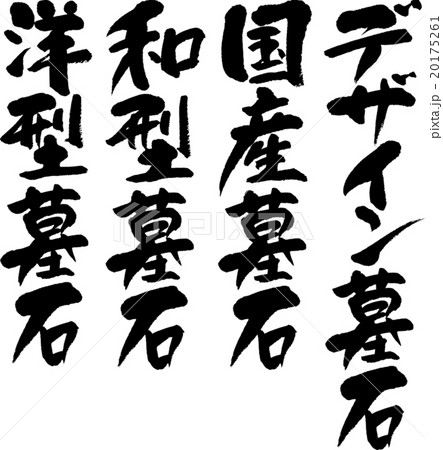 デザイン墓石
国産墓石
和型墓石
洋型墓石
pixta.jp - 20175261
PIXTA